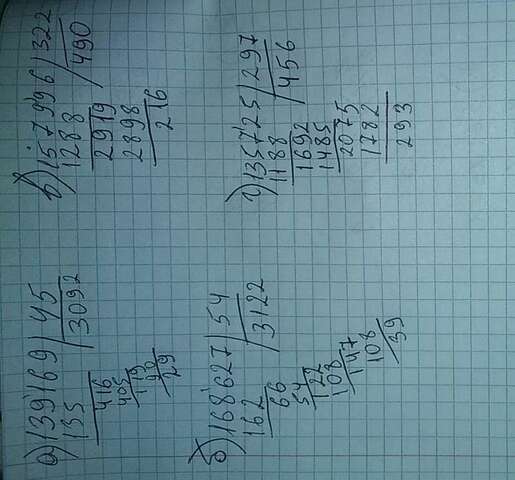 а) 139169 | 45
135 3092
416
405
119
90
29
б) 168627 | 54
162 3122
66
54
122
108
147
108
39
в) 157996 | 322
1288 490
2919
2898
216
г) 135725 | 297
1188 456
1692
1485
2075
1782
293